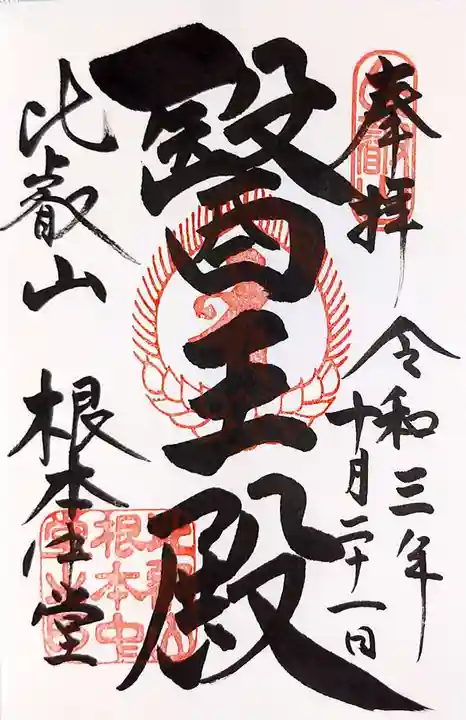 奉拝
令和三年
十月二十一日
醫王殿
比叡山 根本中堂
根本中